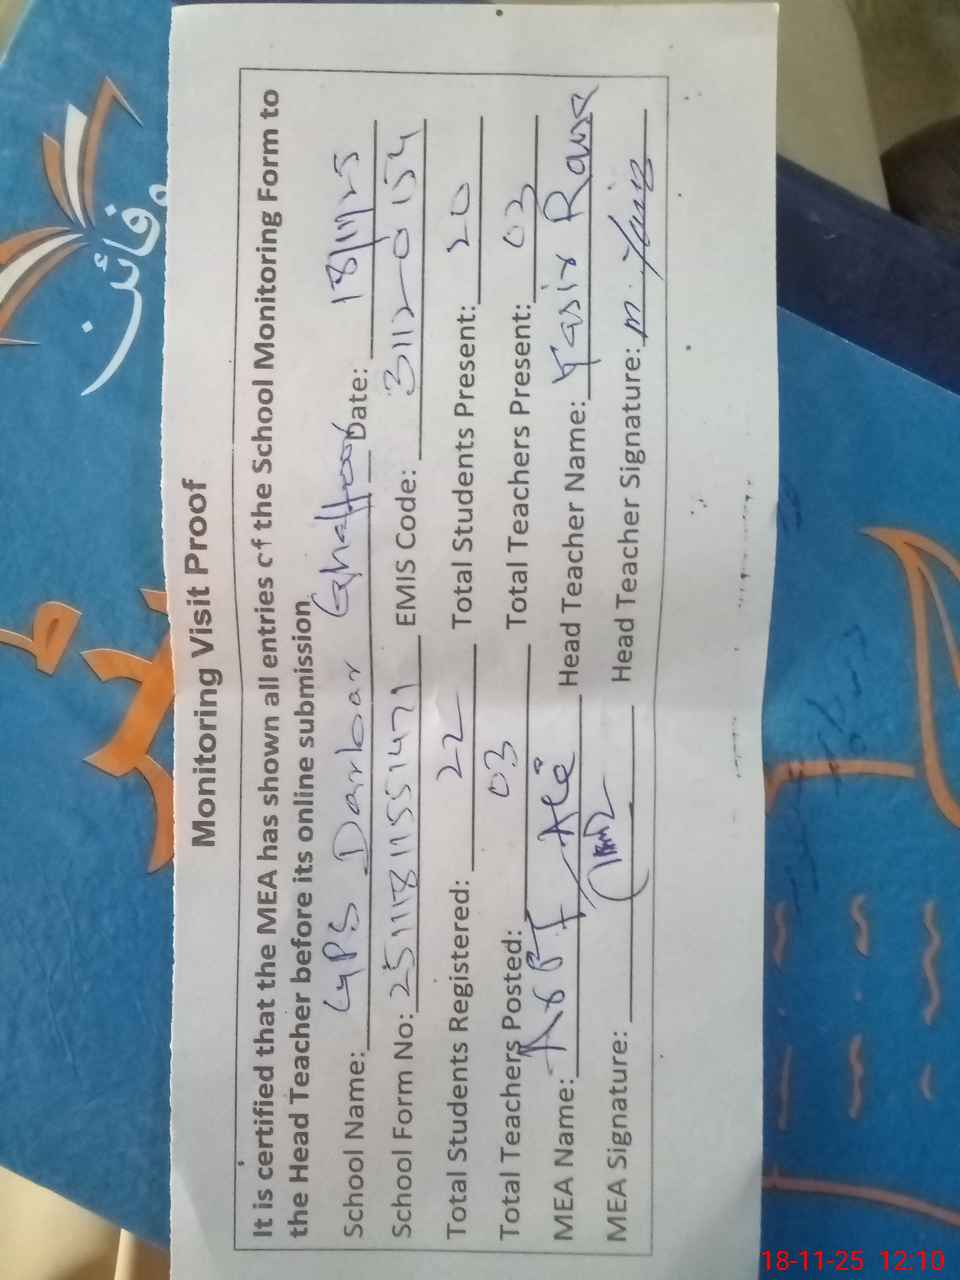 Monitoring Visit Proof
It is certified that the MEA has shown all entries of the School Monitoring Form to
the Head Teacher before its online submission
School Name: GPS Darbar Ghaffoor Date: 18/11/25
School Form No: 25111811551471 EMIS Code: 31120154
Total Students Registered: 22 Total Students Present: 20
Total Teachers Posted: 03 Total Teachers Present: 03
MEA Name: Ali Head Teacher Name: Yasir Raza
MEA Signature: Head Teacher Signature: M. Yasir
فائل
18-11-25 12:10